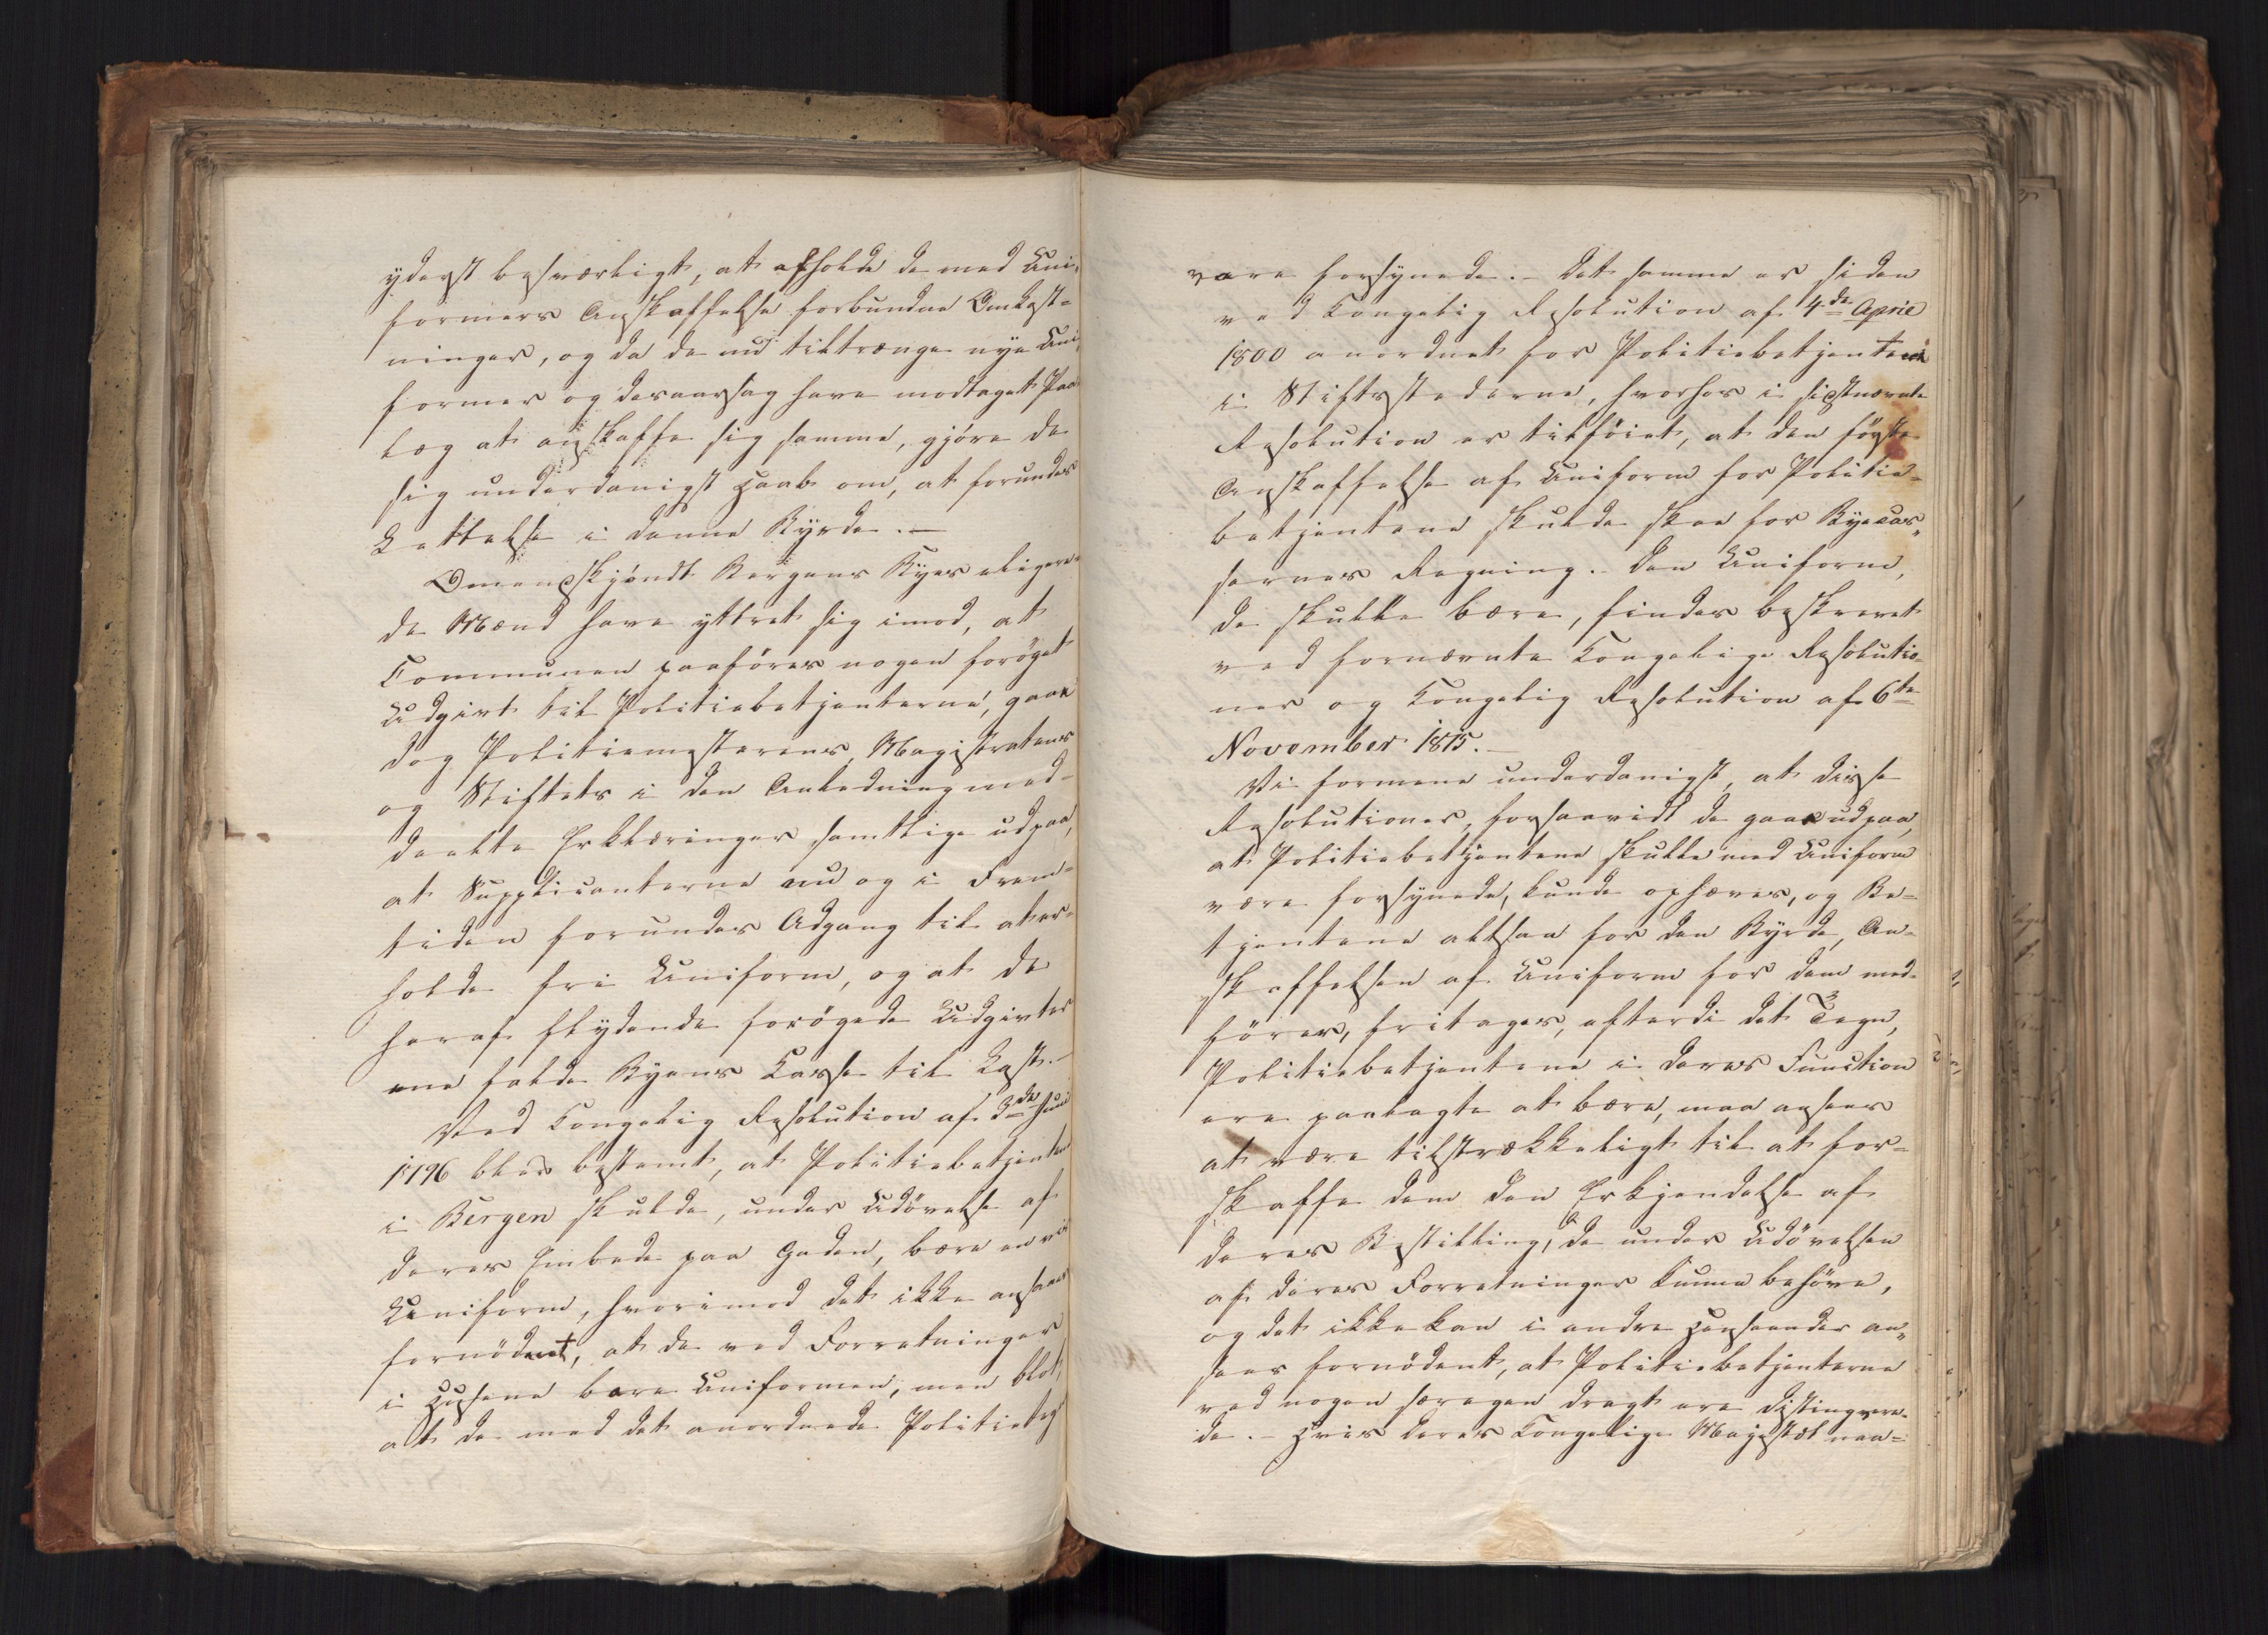 yderst besværligt, at afholde de med Uni-
formers Anskaffelse forbundne Omkost-
ninger, og da de nu tiltrænge nye Uni-
former og desaarsag have modtaget Paa-
læg at anskaffe sig samme, gjöre de
sig underdanigst Haab om, at forundes
Lettelse i denne Byrde. —
Omendskjöndt Bergens Byes eligere-
de Mænd have yttret sig imod, at
Communen paaföres nogen foröget
Udgivt til Politiebetjenterne, gaae
dog Politiemesterens, Magistratens
og Stiftets i den Anledning med-
deelte Erklæringer samtlige udpaa,
at Supplicanterne nu og i Frem-
tiden forundes Adgang til at er-
holde fri Uniform, og at de
heraf flydende forögede Udgivter
maa falde Byens Casse til Last. —
Ved Kongelig Resolution af 3de Juni
1796 blev bestemt, at Politiebetjentene
i Bergen skulde, under Udövelse af
deres Embede paa Gaden, bære en vis
Uniform, hvorimod det ikke ansaaes
fornödent, at de ved Forretninger
i Husene bare Uniformen, men blot,
at de med det anordnede Politietegn
vare forsynede. — Det samme er siden
ved Kongelig Resolution af 4de April
1800 anordnet for Politiebetjentene
i Stiftsstederne, hvorhos i sidstnævnte
Resolution er tilföiet, at den förste
Anskaffelse af Uniform for Politie-
betjentene skulde skee for Byecas-
sernes Regning. — Den Uniform,
de skulle bære, findes beskrevet
ved fornævnte Kongelige Resolutio-
ner og Kongelig Resolution af 6te
November 1815. —
Vi formene underdanigst, at disse
Resolutioner, forsaavidt de gaae udpaa,
at Politiebetjentene skulle med Uniform
være forsynede, kunde ophæves, og Be-
tjentene altsaa for den Byrde, An-
skaffelsen af Uniform for dem med-
förer, fritages, efterdi det Tegn,
Politiebetjentene i deres Function
ere paalagte at bære, maa ansees
at være tilstrækkeligt til at for-
skaffe dem den Erkjendelse af
deres Bestilling, de under Udövelsen
af deres Forretninger kunne behöve,
og det ikke kan i andre Henseender an-
sees fornödent, at Politiebetjenterne
ved nogen særegen Dragt ere distingvere-
de. — Hvis Deres Kongelige Majestæt naa-